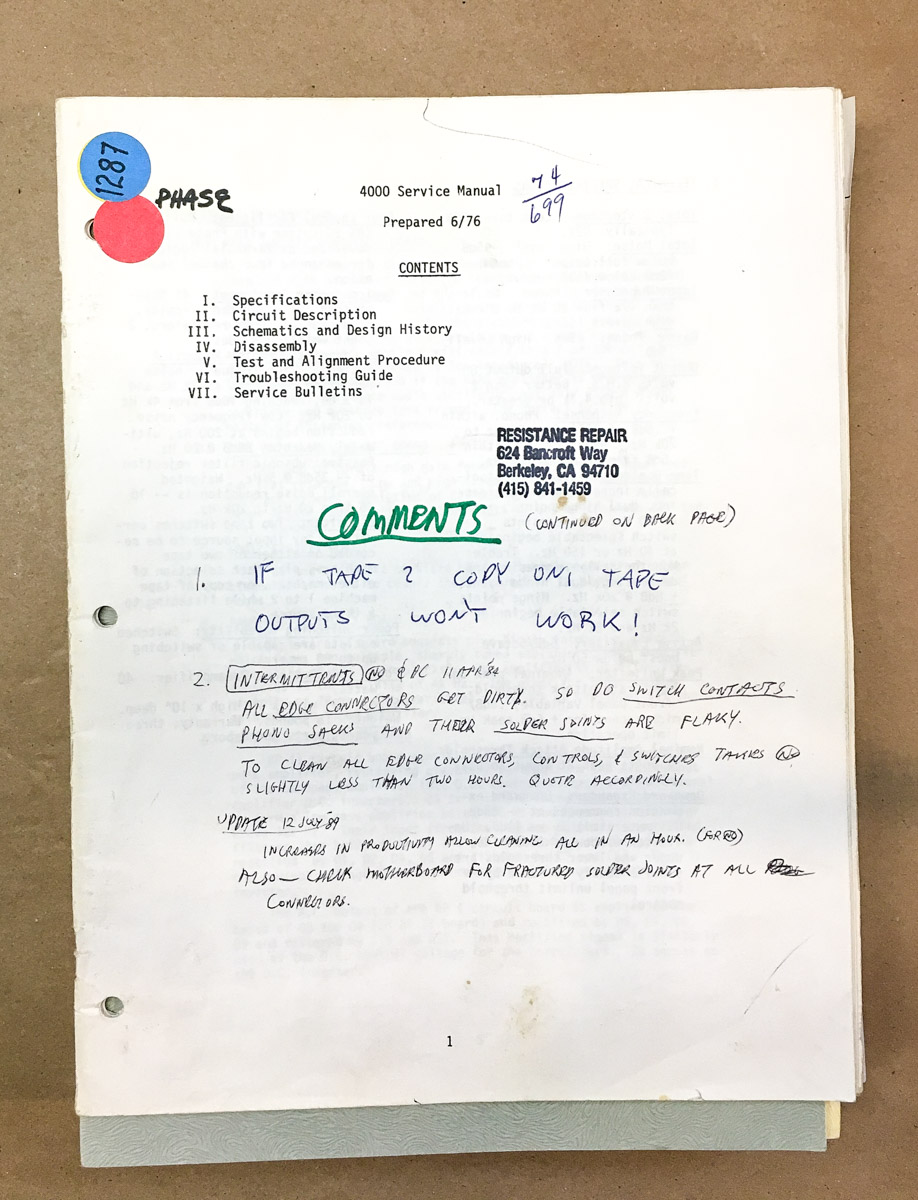 1287
PHASE
4000 Service Manual
74
699
Prepared 6/76
CONTENTS
I. Specifications
II. Circuit Description
III. Schematics and Design History
IV. Disassembly
V. Test and Alignment Procedure
VI. Troubleshooting Guide
VII. Service Bulletins
RESISTANCE REPAIR
624 Bancroft Way
Berkeley, CA 94710
(415) 841-1459
COMMENTS (CONTINUED ON BACK PAGE)
1. IF TAPE 2 COPY ON, TAPE
OUTPUTS WON'T WORK!
2. INTERMITTENTS 11 APR '84
ALL EDGE CONNECTORS GET DIRTY. SO DO SWITCH CONTACTS.
PHONO JACKS AND THEIR SOLDER JOINTS ARE FLAKY.
TO CLEAN ALL EDGE CONNECTORS, CONTROLS, & SWITCHES TAKES
SLIGHTLY LESS THAN TWO HOURS. QUOTE ACCORDINGLY.
UPDATE 12 JULY 89
INCREASES IN PRODUCTIVITY ALLOW CLEANING ALL IN AN HOUR. (FOR
ALSO — CHECK MOTHERBOARD FOR FRACTURED SOLDER JOINTS AT ALL
CONNECTORS.
1